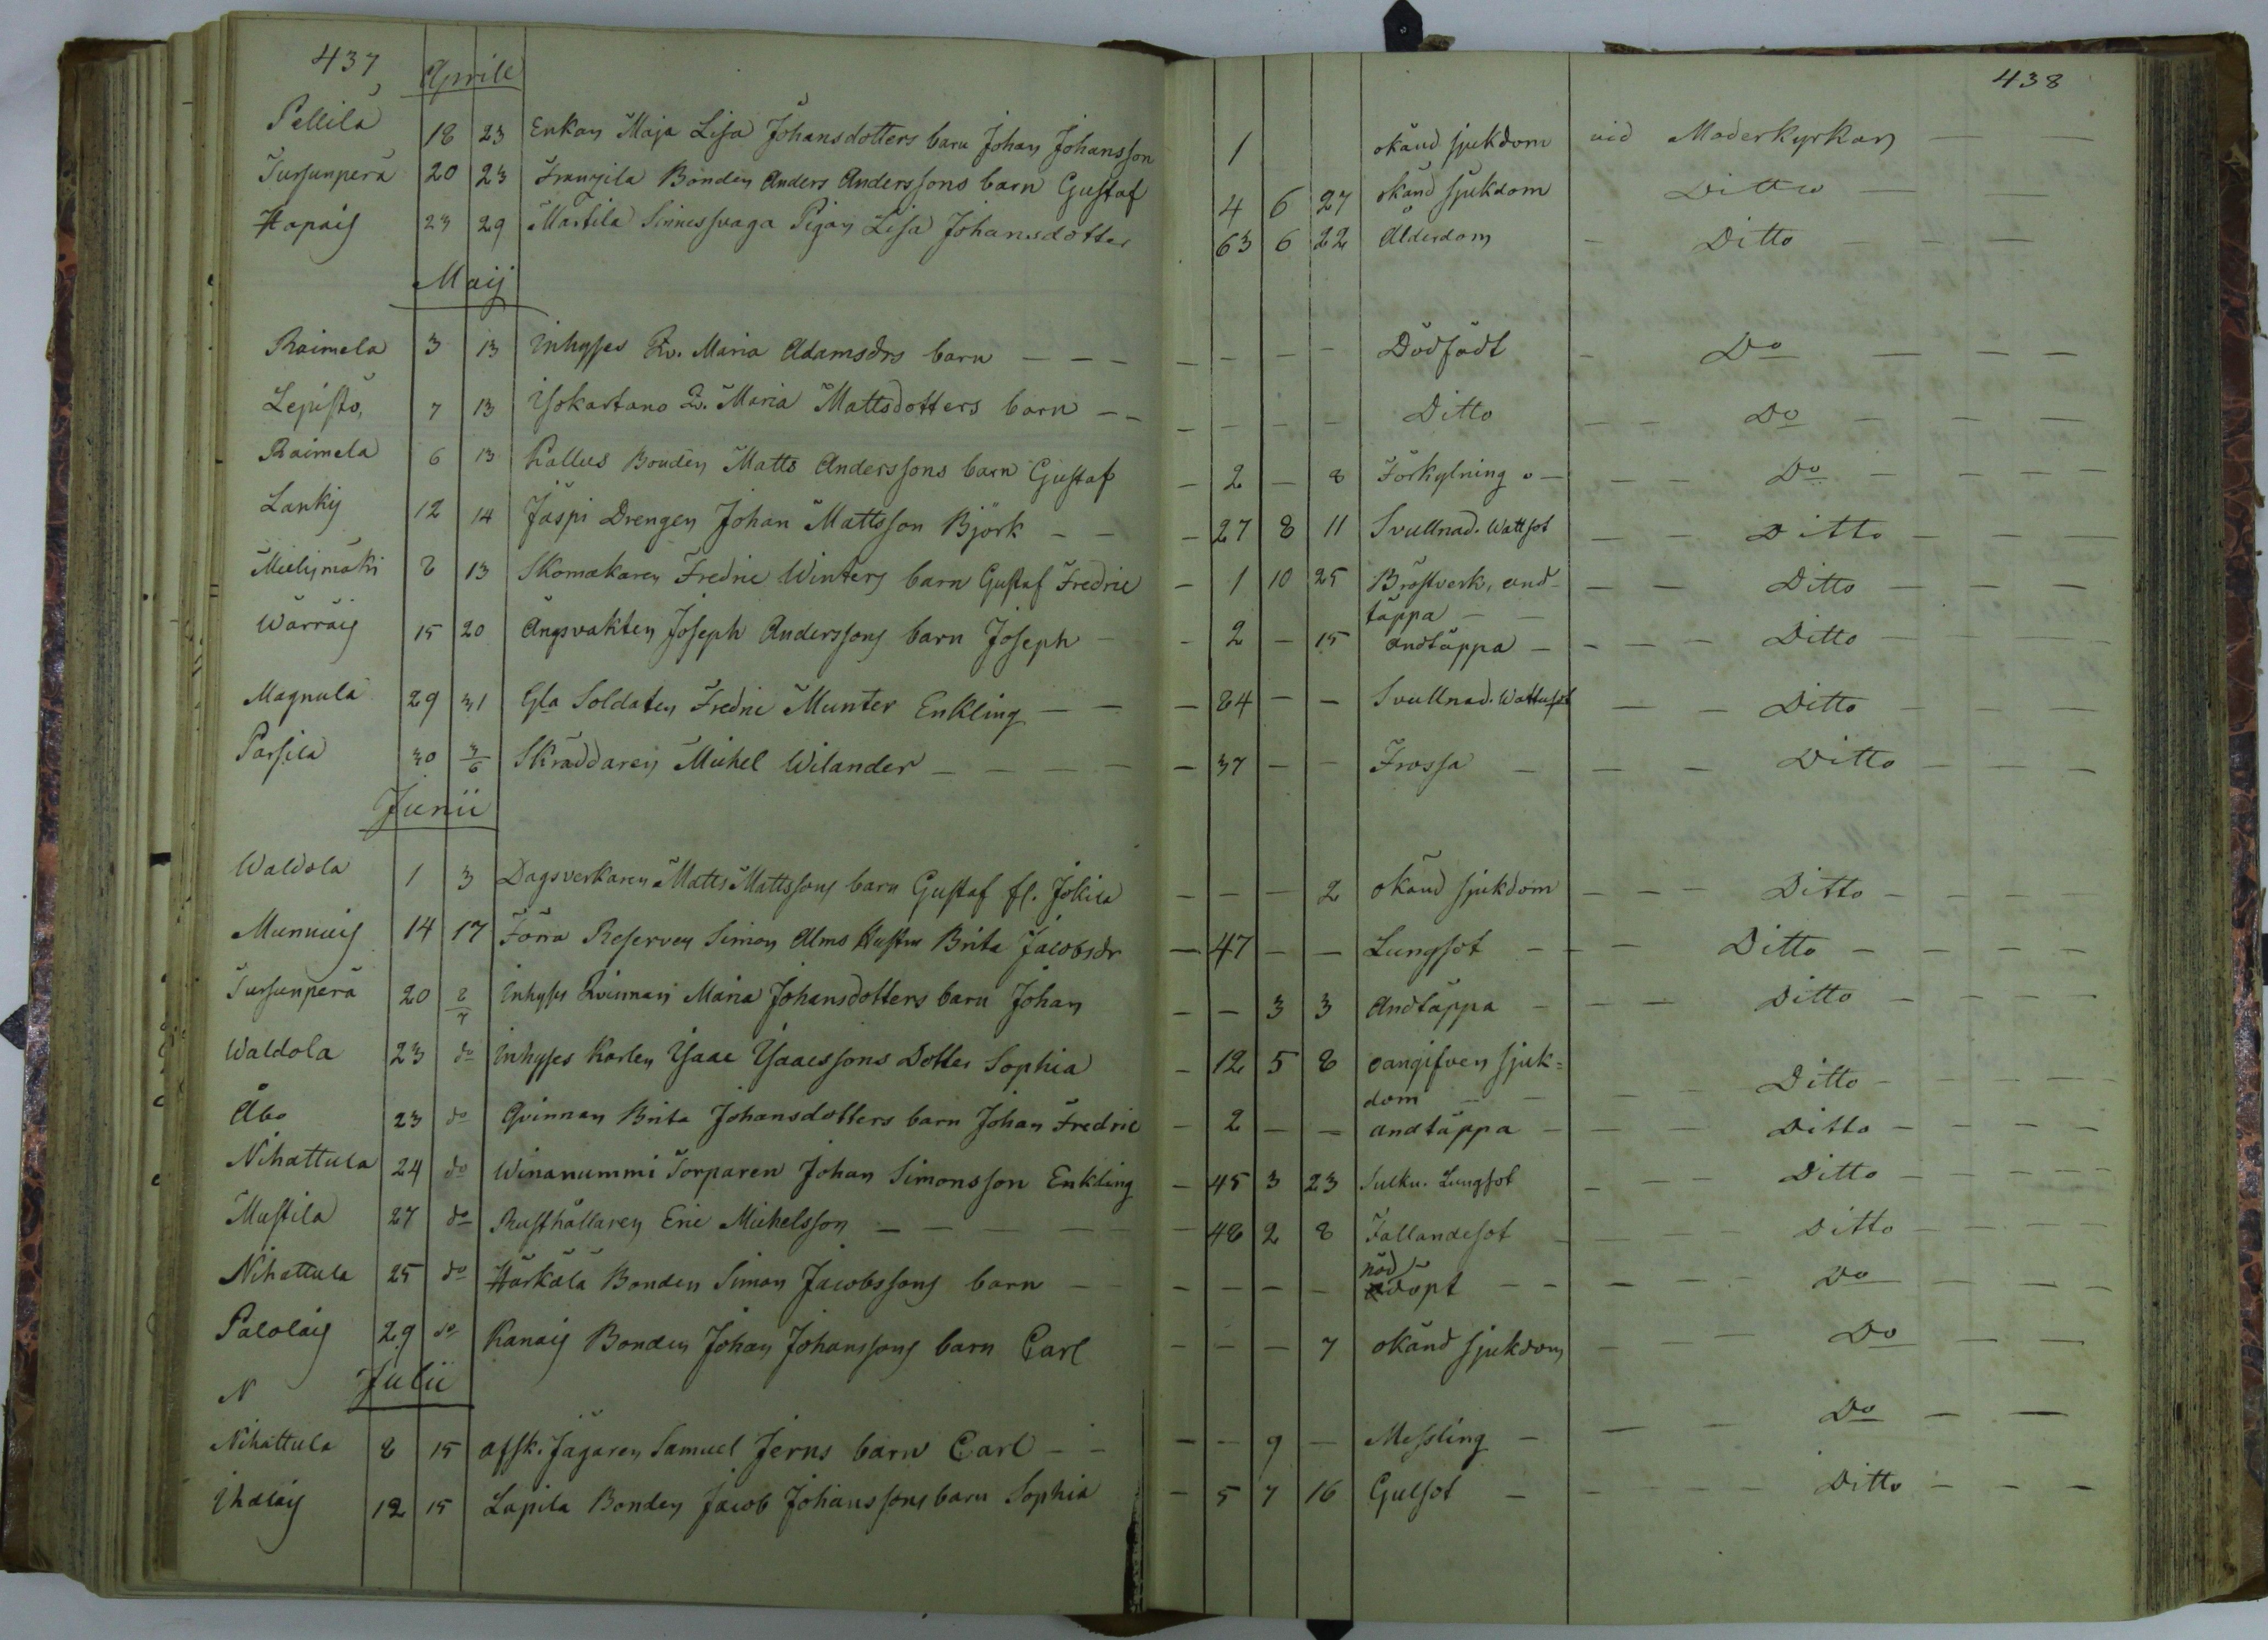 437 438
Aprill
Pellilä 18 23 Enkan Maja Lisa Johansdotters barn Johan Johansson 1 okänd sjukdom vid Moderkyrkan
Tursunperä 20 23 Franzila Bonden Anders Anderssons barn Gustaf 4 6 27 okänd sjukdom Ditto
Hapais 23 29 Martila Sinnessvaga Pigan Lisa Johansdotter 63 6 22 Ålderdom - Ditto
Maij
Raimela 3 13 Inhyses Qv. Maria Adamsdrs barn - - - - - - - Dödfödt - Do
Lepistö, 7 13 Isokartano Q. Maria Mattsdotters barn - - - - - - Ditto - - Do
Raimela 6 13 Kallus Bonden Matts Anderssons barn Gustaf - 2 - 8 Förkylning - - Do
Lankis 12 14 Jäspi Drengen Johan Mattsson Björk - - - 27 8 11 Svullnad. Wattsot - - Ditto
Mielismäki 8 13 Skomakaren Fredric Winters barn Gustaf Fredric - 1 10 25 Bröstverk, and-
täppa - - Ditto
Wärräis 15 20 Ängsvakten Joseph Anderssons barn Joseph - - 2 - 15 andtäppa - - - - Ditto
Magnula 29 31 Gla Soldaten Fredric Munter Enkling - - - 84 - - Svullnad. Wattusot - - Ditto
Parsila 30 3/6 Skräddaren Michel Wilander - - - - - 37 - - Frossa - - - Ditto
Junii
Waldola 1 3 Dagsverkaren Matts Mattssons barn Gustaf fl. Jokila - - - 2 okänd sjukdom - - - Ditto
Munnuis 14 17 Förra Reserven Simon Alms Hustru Brita Jacobsdr - 47 - - Lungsot - - - Ditto
Tursunperä 20 8/7 Inhyses Qvinnan Maria Johansdotters barn Johan - - 3 3 Andtäppa - - - Ditto
Waldola 23 do Inhyses Karlen Isaac Isaacssons Dotter Sophia - 12 5 8 oangifven sjuk=
dom - - - - Ditto
Åbo 23 do Qvinnan Brita Johansdotters barn Johan Fredric - 2 - - andtäppa - - - Ditto
Nihattula 24 do Winanummi Torparen Johan Simonsson Enkling - 45 3 23 Lungsot - - - Ditto
Mustila 27 do Rusthållaren Eric Michelsson - - - - - 48 2 8 Fallandesot - - - Ditto
Nihattula 25 do Härkälä Bonden Simon Jacobssons barn - - - - - - nöddöpt - - - - Do
Palolais 29 do Kanais Bonden Johan Johanssons barn Carl - - - 7 okänd sjukdom - - - Do
N Julii
Nihattula 8 15 afsk. Jägaren Samuel Jerns barn Carl - - - - 9 - Messling - - - Do
Ihalais 12 15 Lapila Bonden Jacob Johanssons barn Sophia - 5 7 16 Gulsot - - - - Ditto